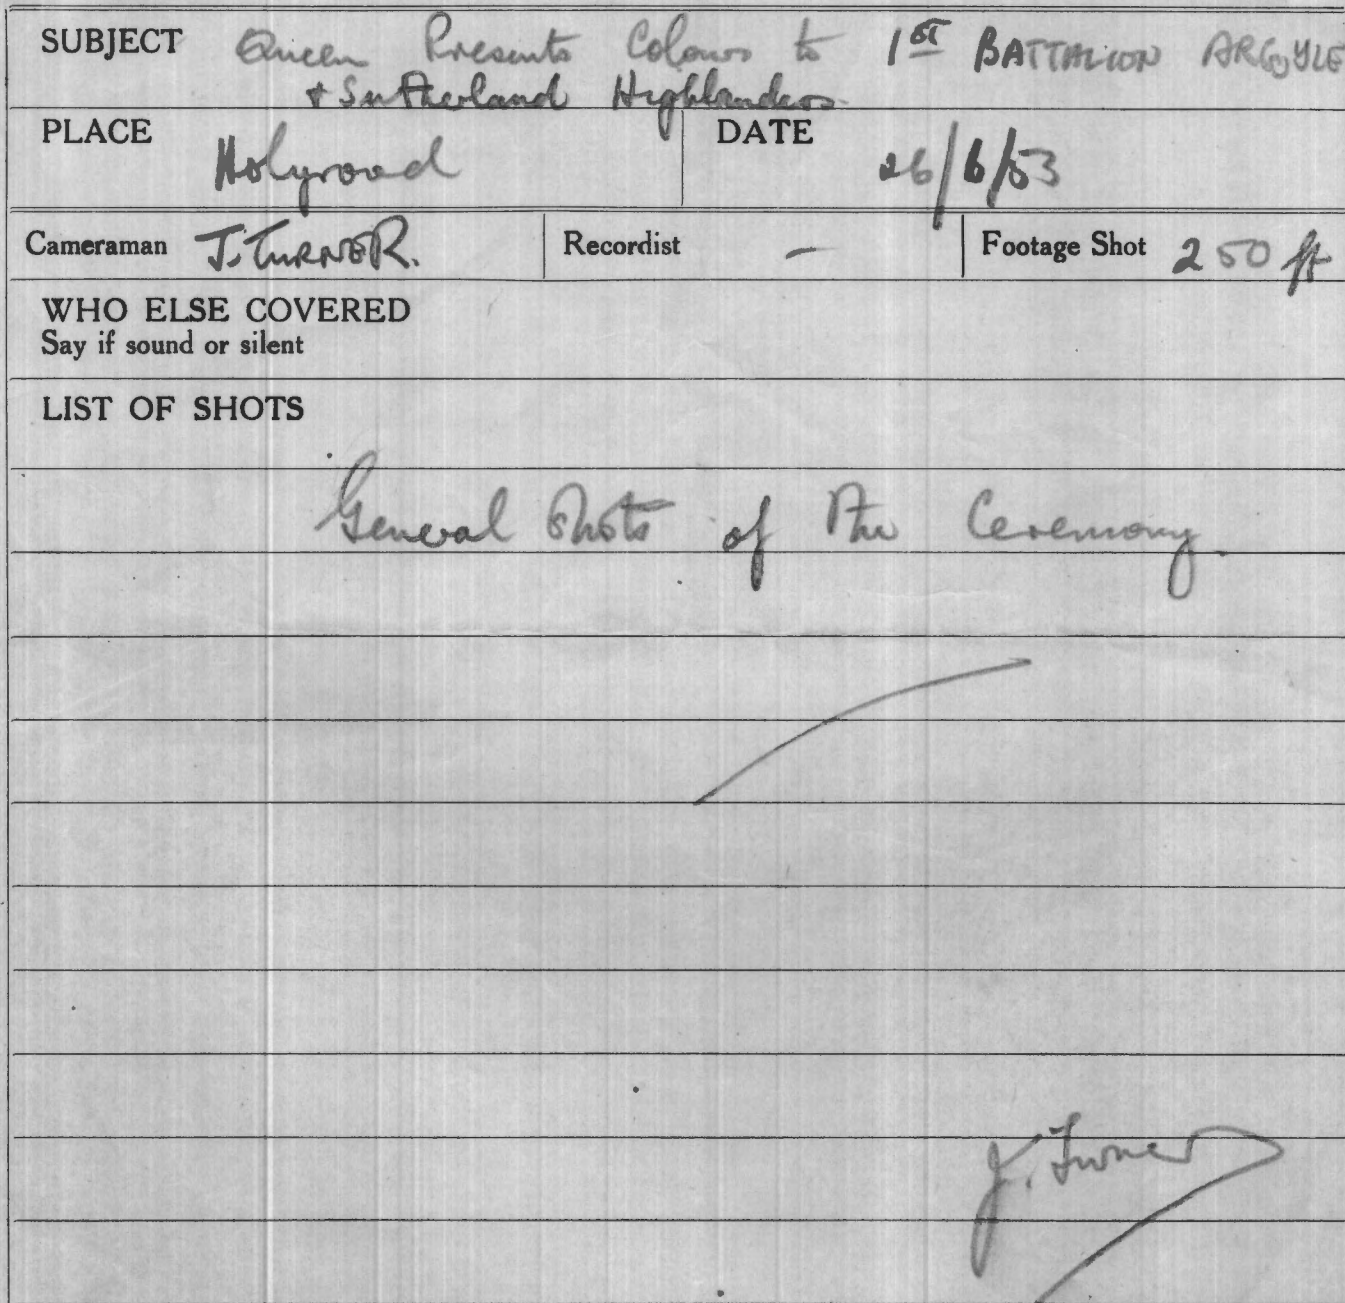 SUBJECT Queen Presents Colours to 1st BATTALION ARGYLE
+ Sutherland Highlanders.
PLACE Holyrood DATE 26/6/53
Cameraman J. TURNER. Recordist - Footage Shot 250 ft
WHO ELSE COVERED
Say if sound or silent
LIST OF SHOTS
General Shots of the Ceremony.
J. Turner